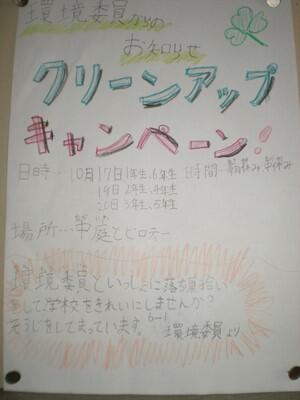 環境委員からの
お知らせ
クリーンアップ
キャンペーン!
日時…10月17日1年生、6年生 時間…
19日2年生、4年生
20日3年生、5年生
場所…中庭とピロティー
環境委員といっしょに落ち葉拾い
をして学校をきれいにしませんか?
そうじをしてまっています。
6-1 環境委員より